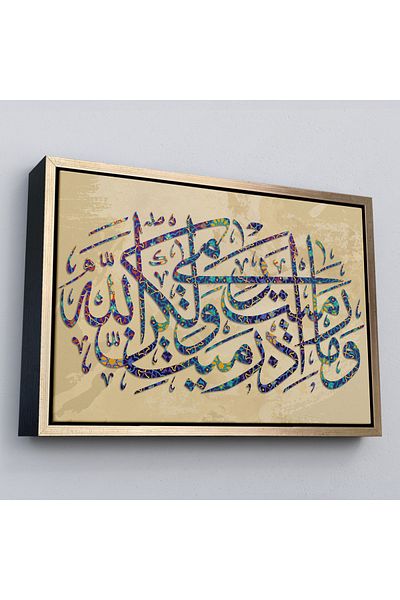 وما رميت إذ رميت ولكن الله رمى